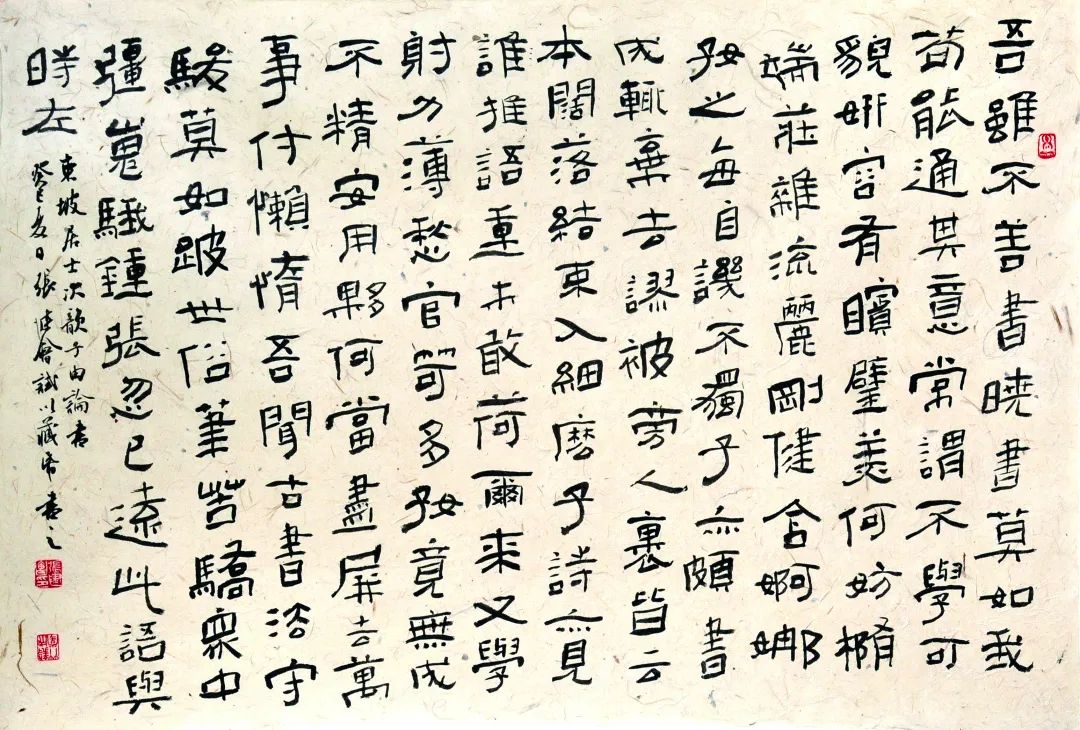 吾雖不善書曉書莫如我
苟能通其意常謂不學可
貌妍容有矉璧美何妨橢
端莊雜流麗剛健含婀娜
好之每自譏不獨子亦頗書
成輒棄去謬被旁人裹皆云
本闊落結束入細麽子詩亦見
誰推語重未敢荷爾來又學
射力薄愁官笴多好竟無成
不精安用夥何當盡屏去萬
事付懶惰吾聞古書法守
駿莫如跛世俗筆苦驕衆中
彊嵬騀鍾張忽已遠此語與
時左
東坡居士次韻子由論書
癸巳夏日張建會試以藏帋書之